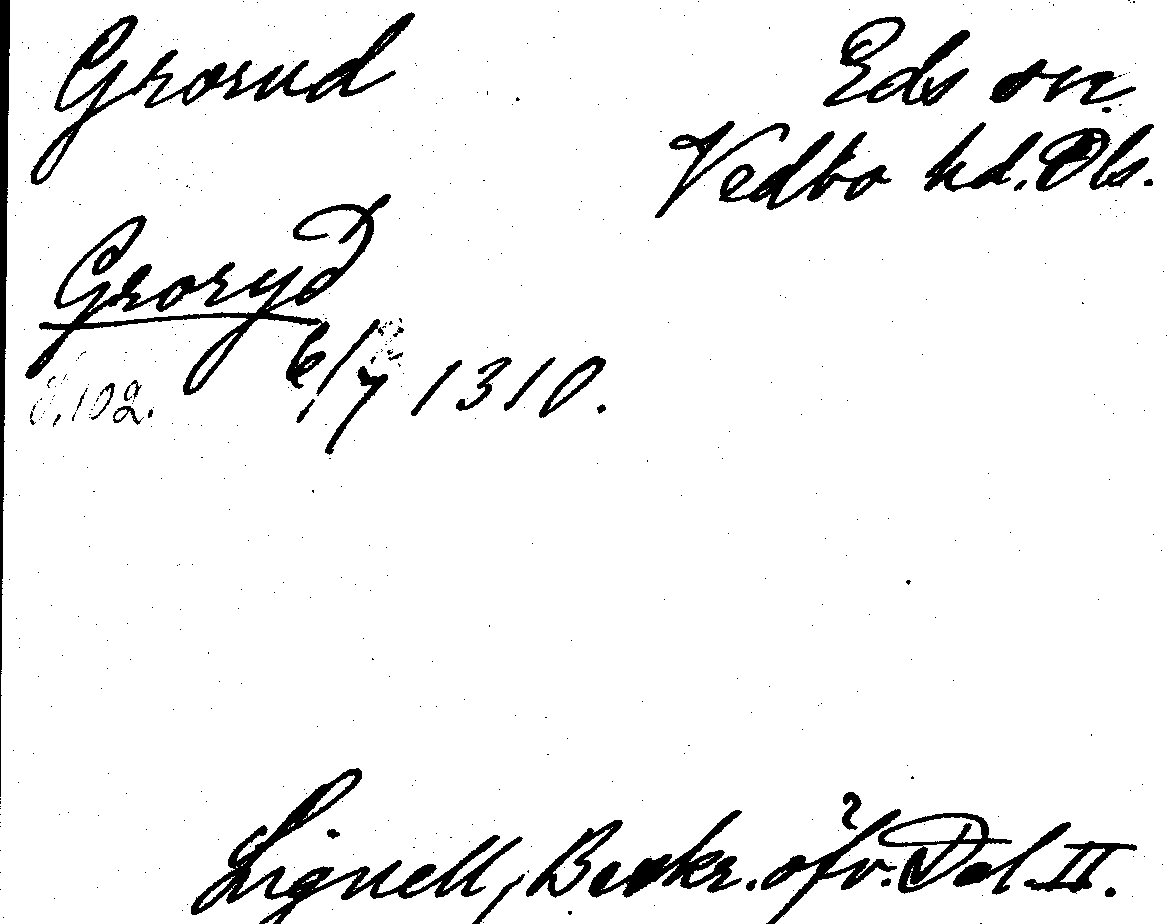 Grorud
Eds sn.
Vedbo hd. Dls.
Groryd
6/7 1310.
s. 102.
Lignell, Beskr. öfv. Dal. II.